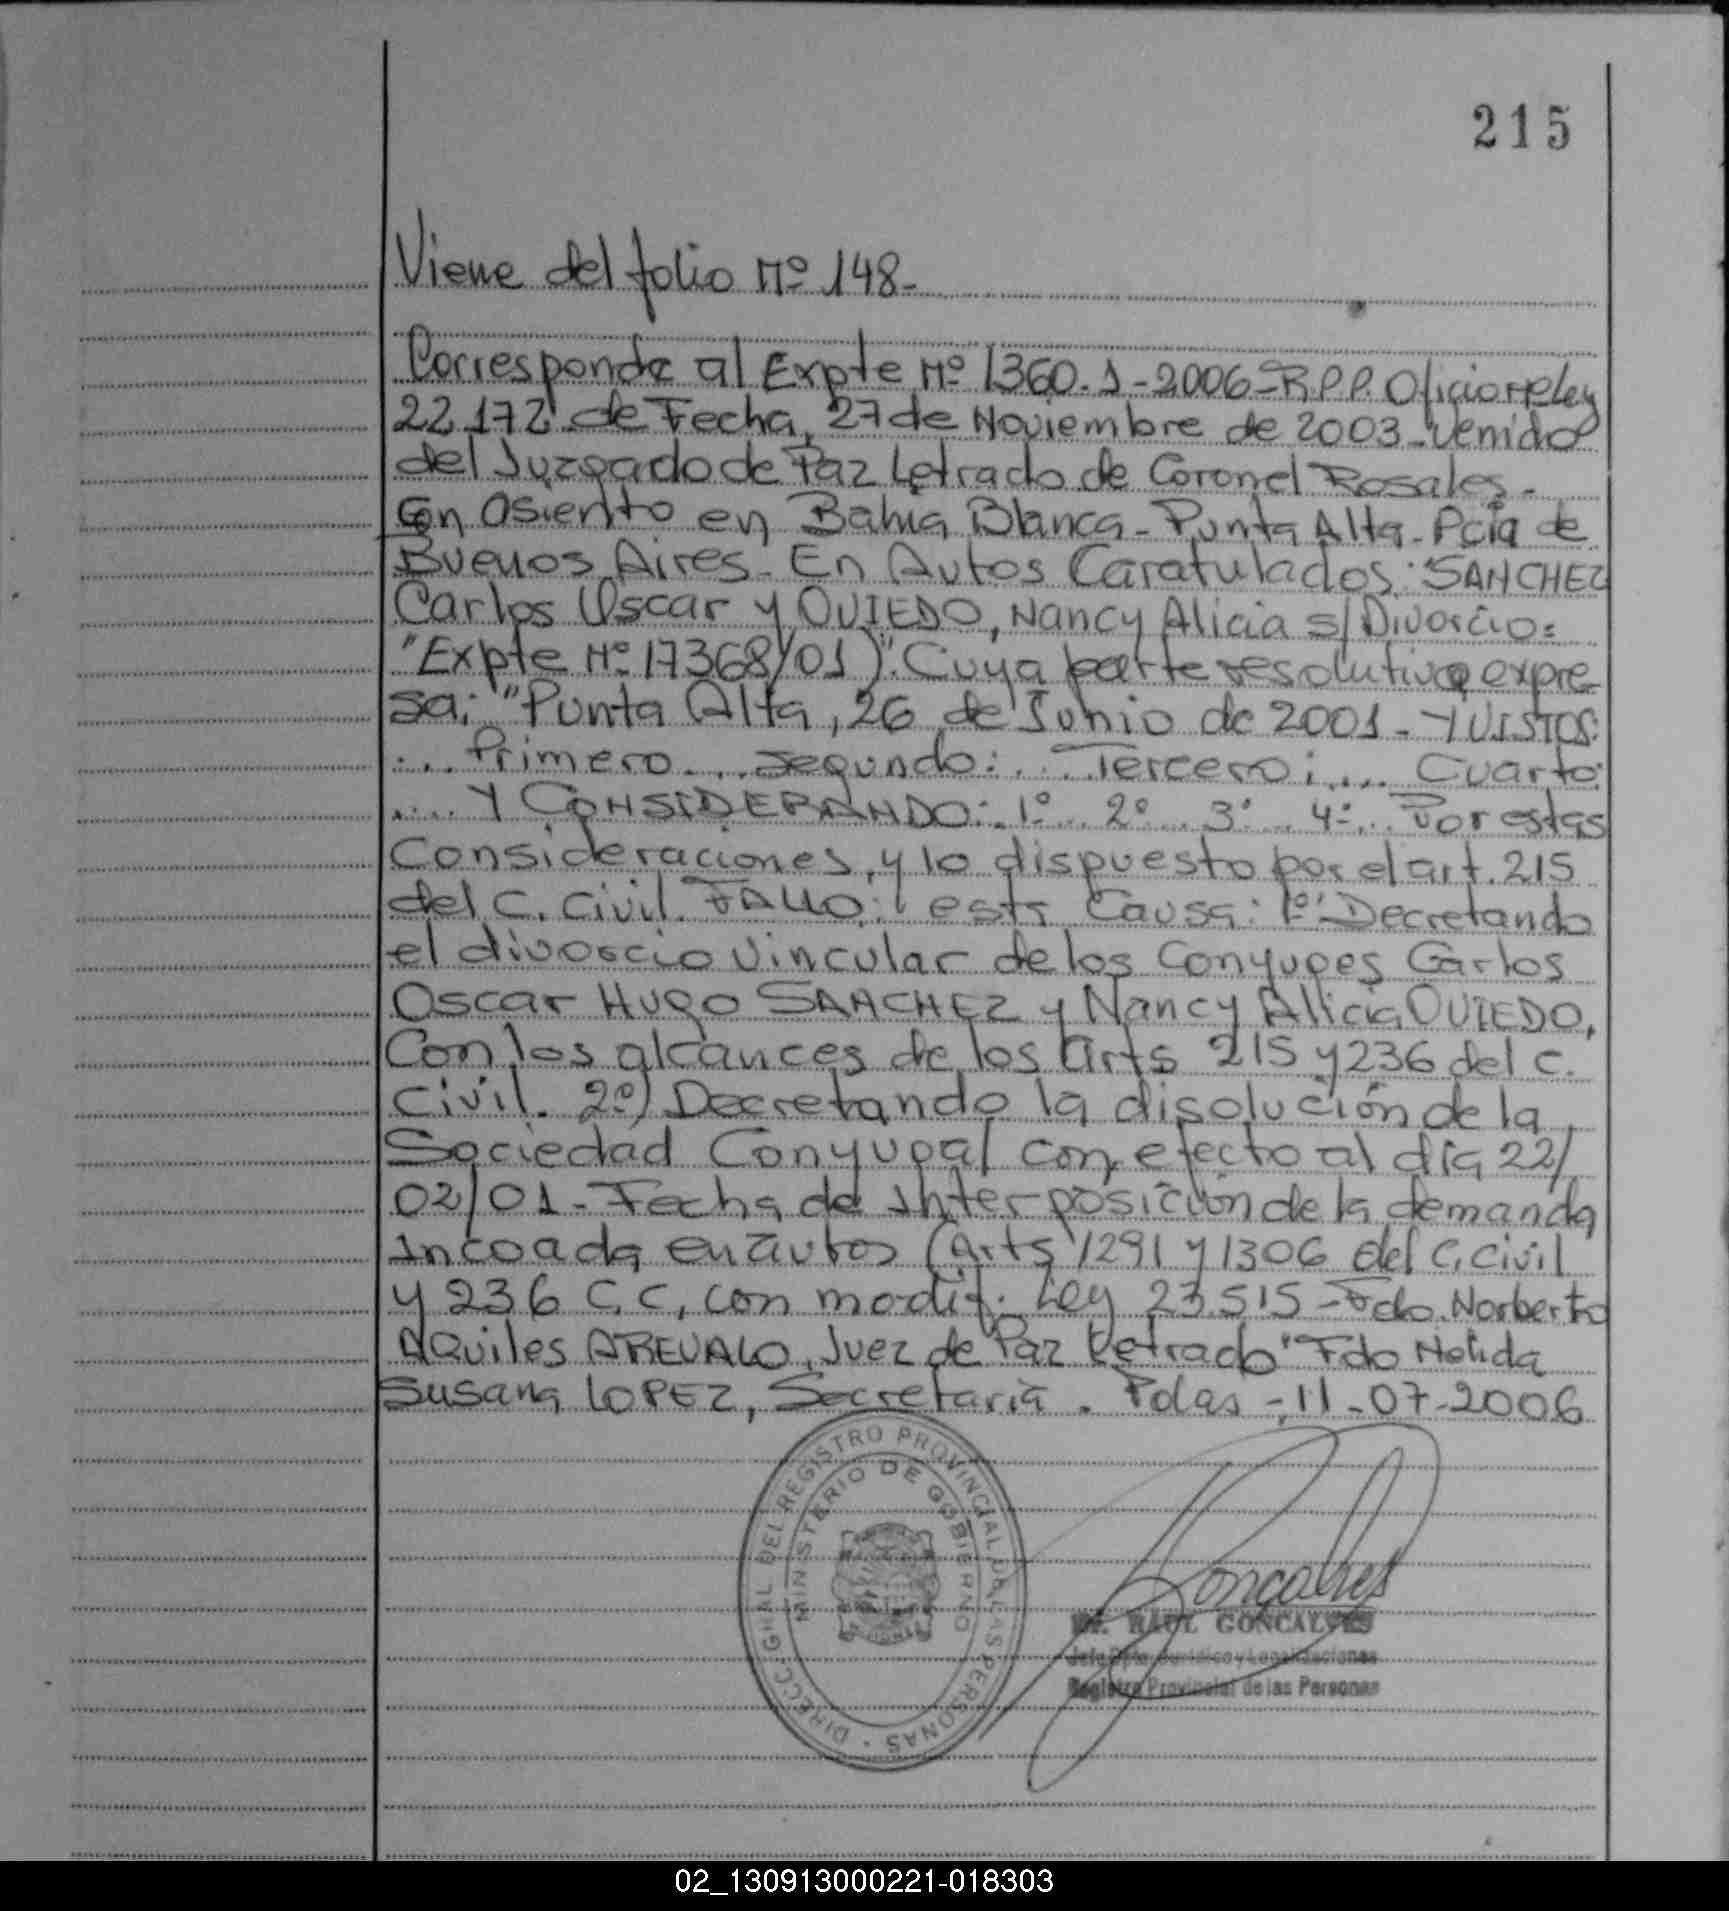 215
Viene del folio Nº 148-
Corresponde al Expte Nº 1360.1-2006-R.P.P. Oficio Ley
22.172 de Fecha, 27 de Noviembre de 2003-Venido
del Juzgado de Paz Letrado de Coronel Rosales-
Con Asiento en Bahia Blanca-Punta Alta-Pcia de
Buenos Aires- En Autos Caratulados: SANCHEZ
Carlos Oscar y OVIEDO, Nancy Alicia s/Divorcio=
"Expte Nº 17368/01)". Cuya parte resolutiva expre
sa: "Punta Alta, 26 de Junio de 2001- Y VISTOS:
.... Primero.... Segundo:... Tercero:.... Cuarto:
.... Y CONSIDERANDO:.1º... 2º... 3º... 4º... Por estas
Consideraciones, y lo dispuesto por el art. 215
del C. Civil. FALLO: esta Causa: 1º Decretando
el divorcio vincular de los Conyuges Carlos
Oscar Hugo SANCHEZ y Nancy Alicia OVIEDO,
Con los alcances de los arts 215 y 236 del C.
Civil. 2º) Decretando la disolución de la
Sociedad Conyugal con efecto al día 22/
02/01- Fecha de Interposición de la demanda
Incoada en autos (arts 1291 y 1306 del C. Civil
y 236 C.C, con modif. Ley 23.515-Fdo. Norberto
AQuiles AREVALO, Juez de Paz Letrado" Fdo Nelida
Susana LOPEZ, Secretaria. Pdas-, 11-07-2006
DIRECC. GRAL DEL REGISTRO PROVINCIAL DE LAS PERSONAS
MINISTERIO DE GOBIERNO
Goncalves
Dr. RAUL GONCALVES
Jefe Dpto. Jurídico y Legalizaciones
Registro Provincial de las Personas
02_130913000221-018303